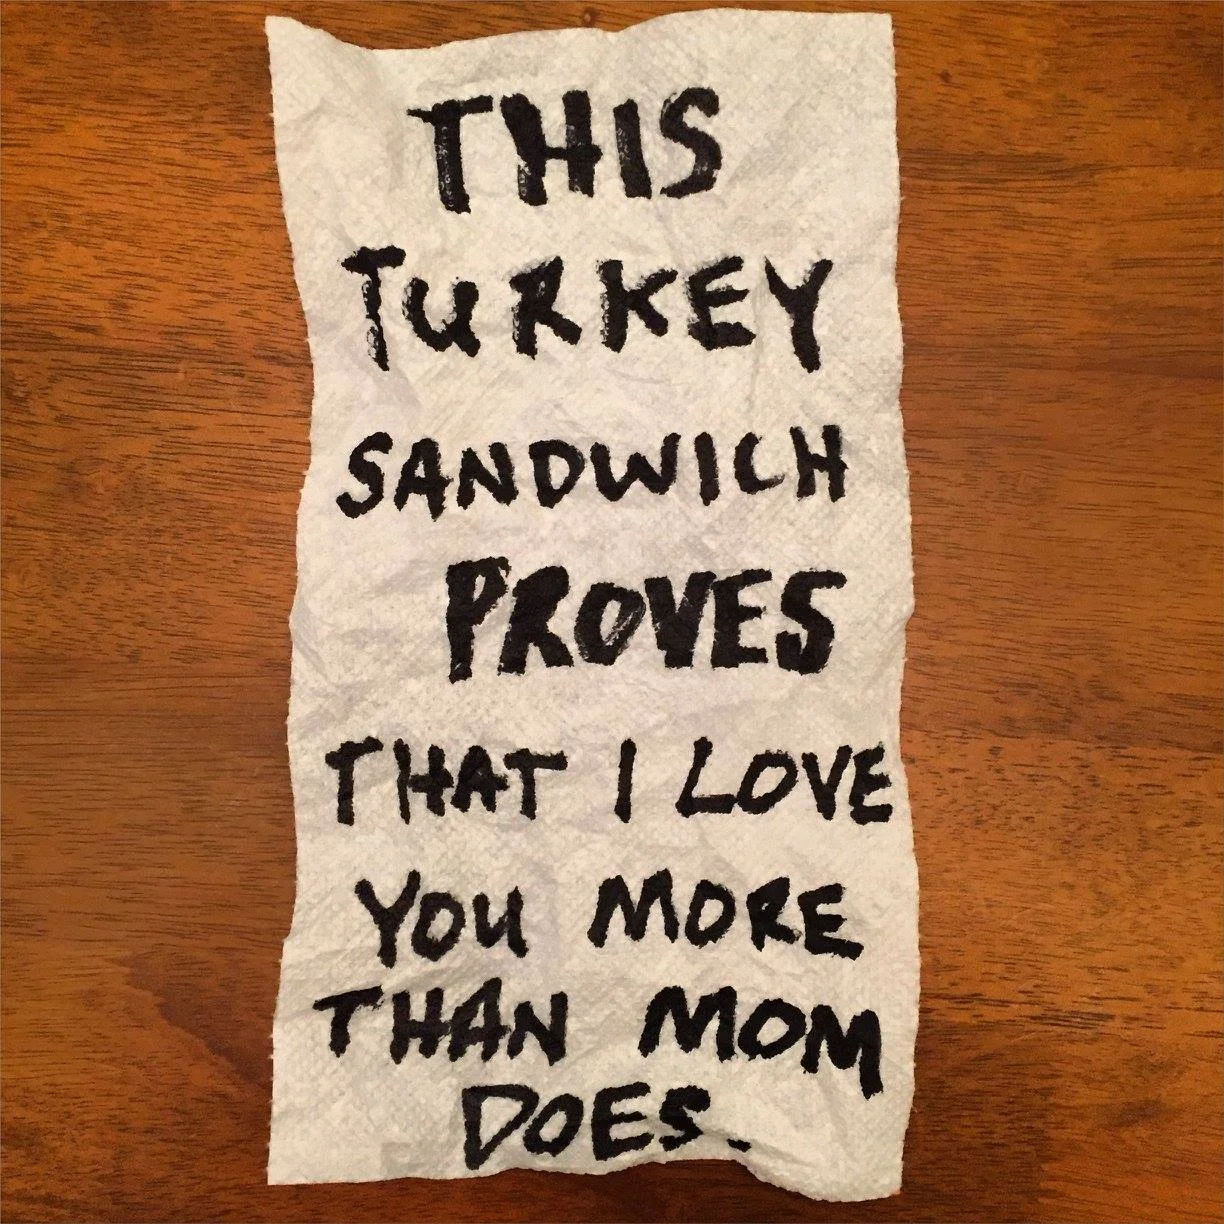 THIS
TURKEY
SANDWICH
PROVES
THAT I LOVE
YOU MORE
THAN MOM
DOES.